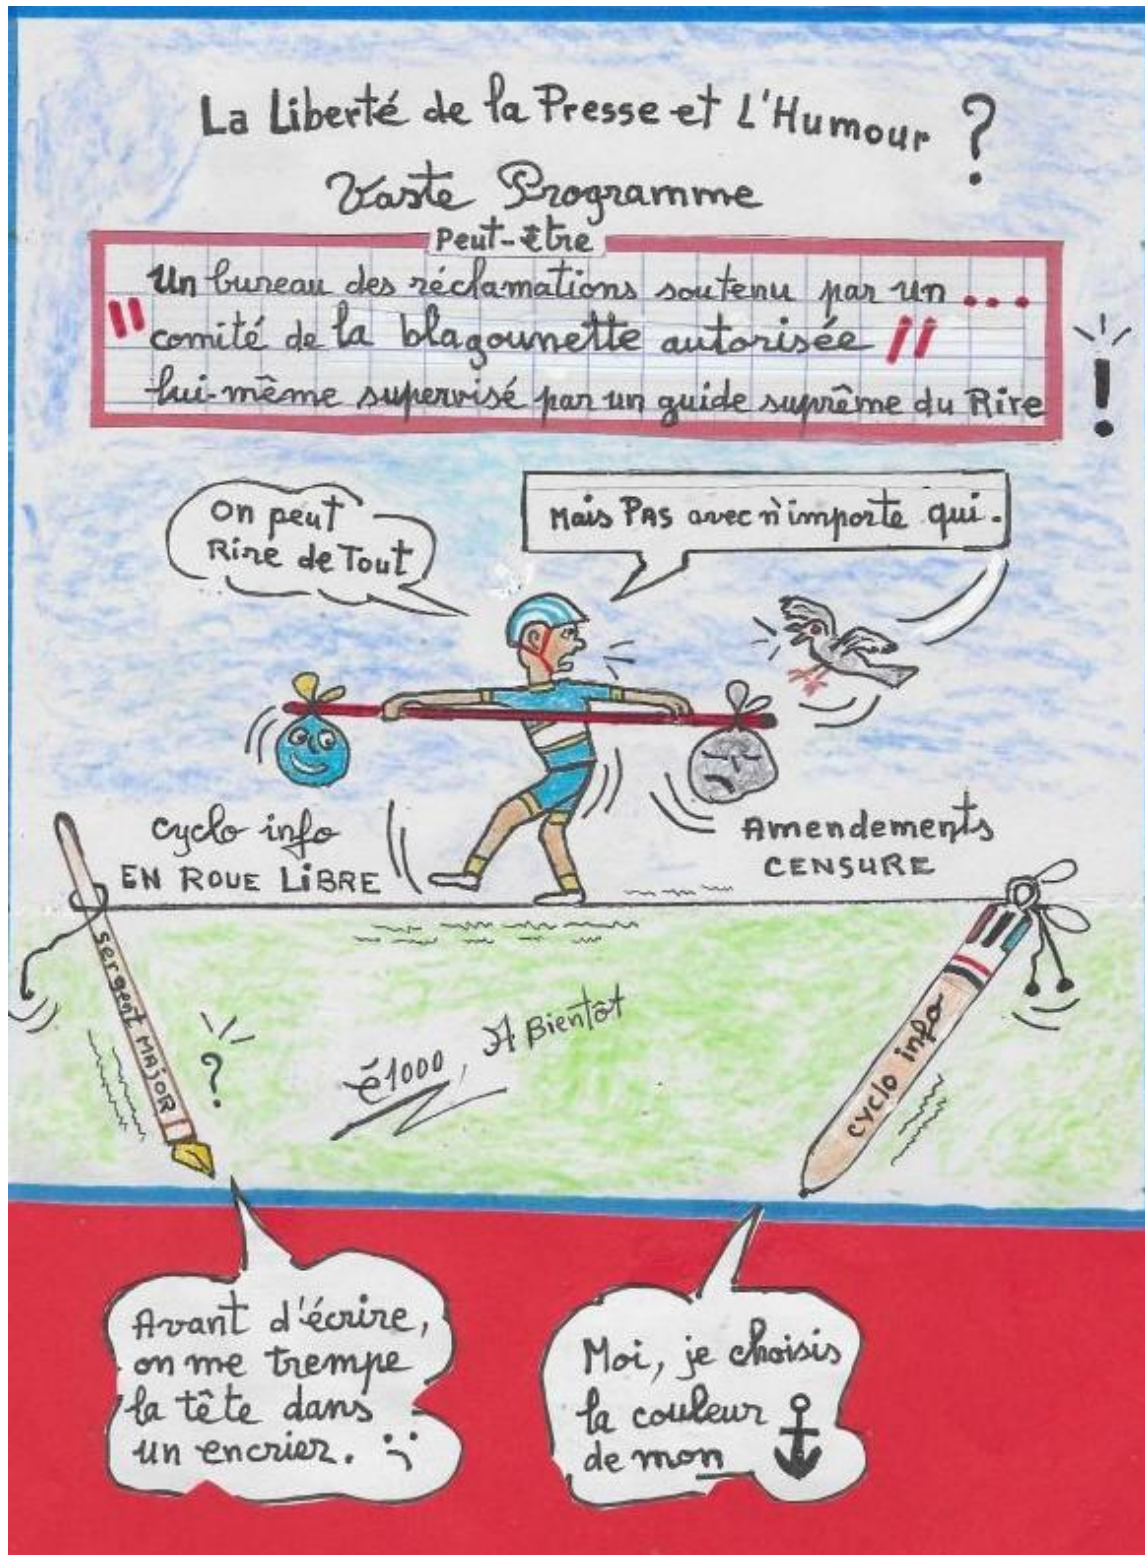 La Liberté de la Presse et L'Humour ?
Vaste Programme
Peut-être
Un bureau des réclamations soutenu par un ...
" comité de la blagounette autorisée "
lui-même supervisé par un guide suprême du Rire
!
On peut
Rire de Tout
Mais PAS avec n'importe qui.
Cyclo info
EN ROUE LIBRE
Amendements
CENSURE
sergent MAJOR
?
é1000, A Bientôt
cyclo info
Avant d'écrire,
on me trempe
la tête dans
un encrier.
Moi, je choisis
la couleur
de mon